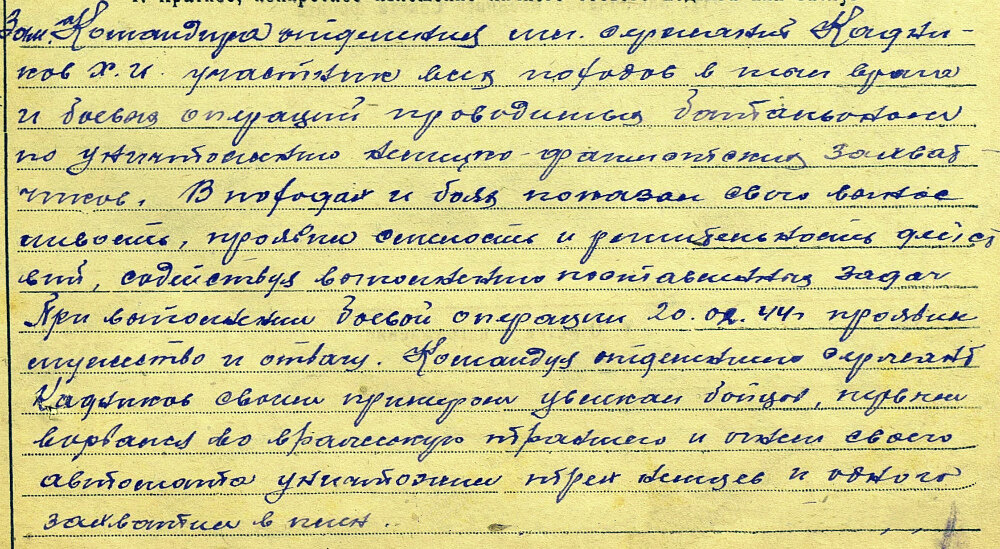 Зам. Командира отделения мл. сержант Кадни-
ков Х.И. участник всех походов в тыл врага
и боевых операций проводимых батальоном
по уничтожению немецко-фашистских захват
чиков. В походах и боях показал свою вынос
ливость, проявил смелость и решительность дейст
вий, содействуя выполнению поставленных задач
При выполнении боевой операции 20.02.44г проявил
мужество и отвагу. Командуя отделением сержант
Кадников своим примером увлекал бойцов, первым
ворвался во вражескую траншею и огнем своего
автомата уничтожил трех немцев и одного
захватил в плен.